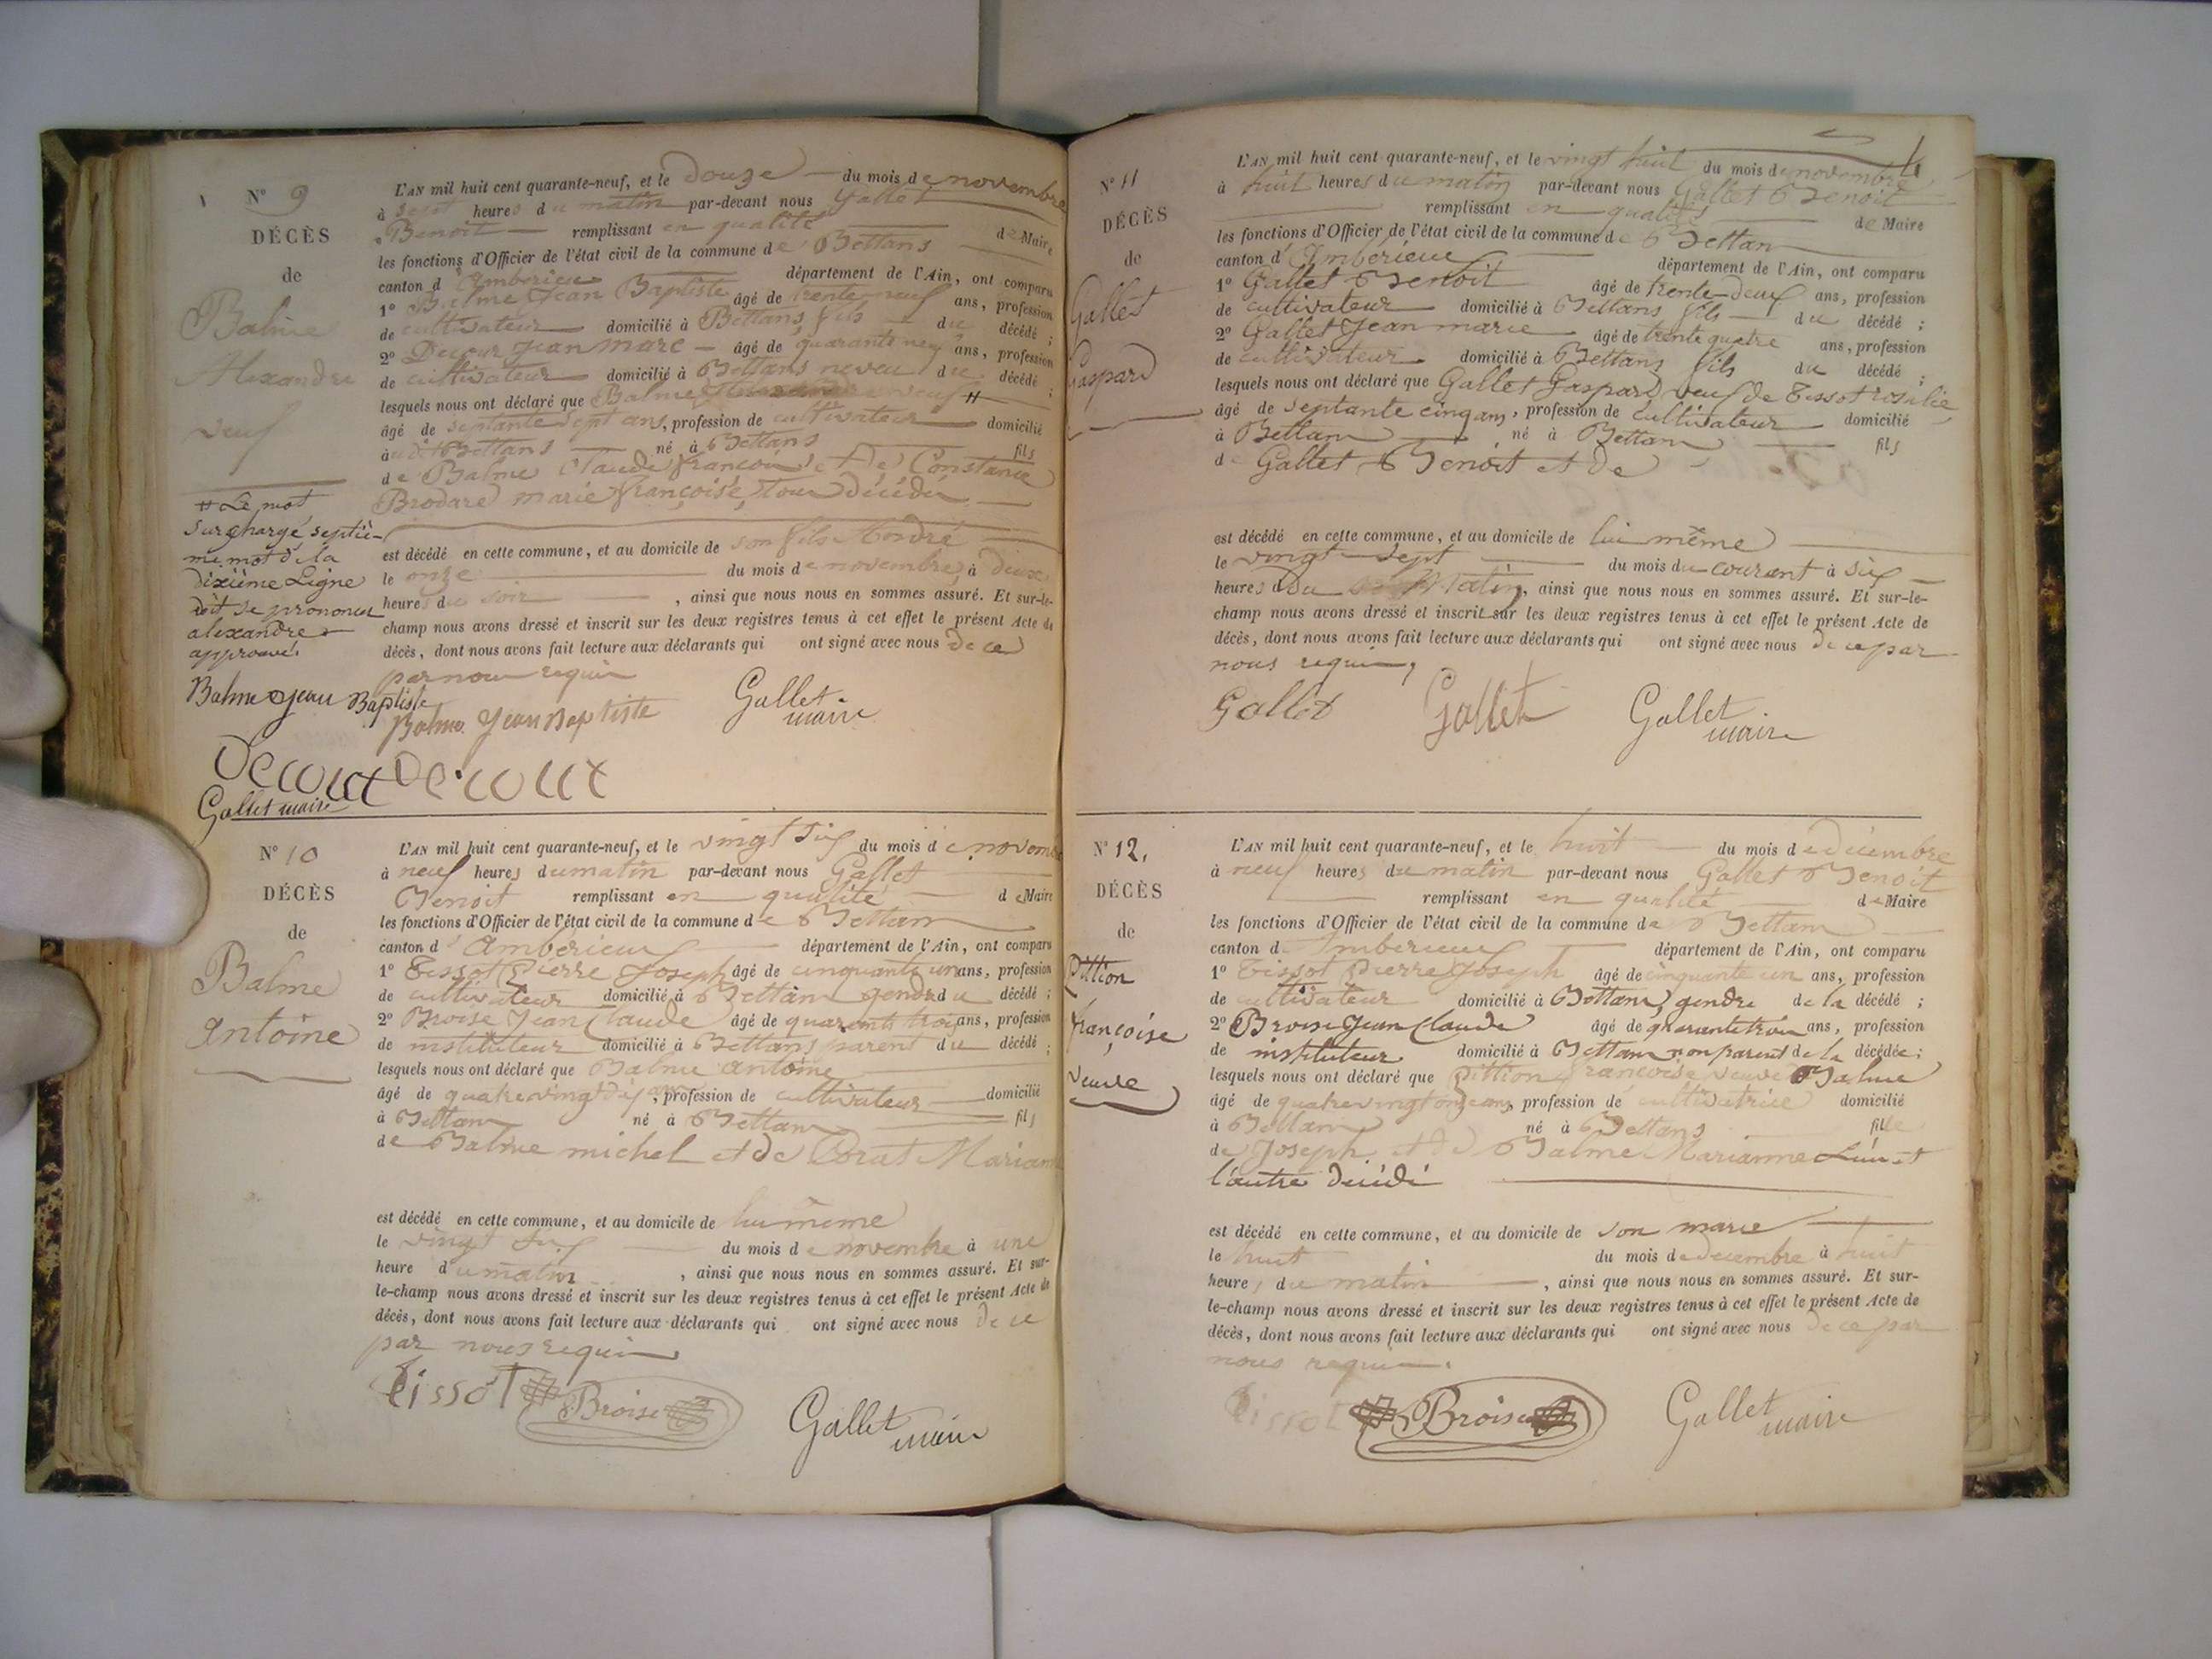 N° 9
DÉCÈS
de
Balme
Alexandre
veuf
# Le mot
surchargé septiè-
me mot de la
dixième Ligne
doit se prononcer
alexandre
approuvé.
Balme Jean Baptiste
Decour
Gallet maire
L'AN mil huit cent quarante-neuf, et le douze du mois de novembre
à sept heures du matin par-devant nous Gallet
Benoit remplissant en qualité de Maire
les fonctions d'Officier de l'état civil de la commune de Bettans
canton d'Amberieu département de l'Ain, ont comparu
1° Balme Jean Baptiste âgé de trente neuf ans, profession
de cultivateur domicilié à Bettans fils du décédé ;
2° Decour Jean Marc âgé de quarante neuf ans, profession
de cultivateur domicilié à Bettans neveu du décédé ;
lesquels nous ont déclaré que Balme veuf #
âgé de septante sept ans, profession de cultivateur domicilié
à Bettans né à Bettans fils
de Balme Claude françois et de Constance
Brodard marie françoise, tous décédés
est décédé en cette commune, et au domicile de son fils André
le onze du mois de novembre, à deux
heures du soir , ainsi que nous nous en sommes assuré. Et sur-le-
champ nous avons dressé et inscrit sur les deux registres tenus à cet effet le présent Acte de
décès, dont nous avons fait lecture aux déclarants qui ont signé avec nous de ce
par nous requis
Balme Jean Baptiste Gallet maire
Decour
N° 10
DÉCÈS
de
Balme
Antoine
L'AN mil huit cent quarante-neuf, et le vingt six du mois de novembre
à neuf heures du matin par-devant nous Gallet
Benoit remplissant en qualité de Maire
les fonctions d'Officier de l'état civil de la commune de Bettans
canton d'Amberieux département de l'Ain, ont comparu
1° Tissot Pierre Joseph âgé de cinquante un ans, profession
de cultivateur domicilié à Bettans gendre du décédé ;
2° Broise Jean Claude âgé de quarante trois ans, profession
de instituteur domicilié à Bettans parent du décédé ;
lesquels nous ont déclaré que Balme antoine
âgé de quatre vingt dix ans, profession de cultivateur domicilié
à Bettans né à Bettans fils
de Balme michel et de Marianne
est décédé en cette commune, et au domicile de lui même
le vingt six du mois de novembre à une
heure du matin , ainsi que nous nous en sommes assuré. Et sur-
le-champ nous avons dressé et inscrit sur les deux registres tenus à cet effet le présent Acte de
décès, dont nous avons fait lecture aux déclarants qui ont signé avec nous de ce
par nous requis
Tissot Broise Gallet maire
N° 11
DÉCÈS
de
Gallet
Gaspard
L'AN mil huit cent quarante-neuf, et le vingt huit du mois de novembre
à huit heures du matin par-devant nous Gallet Benoit
remplissant en qualité de Maire
les fonctions d'Officier de l'état civil de la commune de Bettans
canton d'Ambérieux département de l'Ain, ont comparu
1° Gallet Benoit âgé de trente-deux ans, profession
de cultivateur domicilié à Bettans fils du décédé ;
2° Gallet Jean marie âgé de trente quatre ans, profession
de cultivateur domicilié à Bettans fils du décédé ;
lesquels nous ont déclaré que Gallet Gaspard veuf de Tissot rosalie
âgé de septante cinq ans, profession de cultivateur domicilié
à Bettans né à Bettans fils
de Gallet Benoit et de
est décédé en cette commune, et au domicile de lui même
le vingt sept du mois du courant à six
heures du Matin, ainsi que nous nous en sommes assuré. Et sur-le-
champ nous avons dressé et inscrit sur les deux registres tenus à cet effet le présent Acte de
décès, dont nous avons fait lecture aux déclarants qui ont signé avec nous de ce par
nous requis,
Gallet Gallet Gallet maire
N° 12.
DÉCÈS
de
Pittion
françoise
veuve
L'AN mil huit cent quarante-neuf, et le huit du mois de décembre
à neuf heures du matin par-devant nous Gallet Benoit
remplissant en qualité de Maire
les fonctions d'Officier de l'état civil de la commune de Bettans
canton d'Amberieux département de l'Ain, ont comparu
1° Tissot Pierre Joseph âgé de cinquante un ans, profession
de cultivateur domicilié à Bettans, gendre de la décédé ;
2° Broise Jean Claude âgé de quarante trois ans, profession
de instituteur domicilié à Bettans non parent de la décédée ;
lesquels nous ont déclaré que Pittion françoise veuve Balme
âgé de quatre vingt onze ans, profession de cultivatrice domicilié
à Bettans né à Bettans fille
de Joseph et de Balme Marianne L'un et
l'autre décédé
est décédé en cette commune, et au domicile de son marie
le huit du mois de decembre à huit
heures du matin , ainsi que nous nous en sommes assuré. Et sur-
le-champ nous avons dressé et inscrit sur les deux registres tenus à cet effet le présent Acte de
décès, dont nous avons fait lecture aux déclarants qui ont signé avec nous de ce par
nous requis.
Tissot Broise Gallet maire